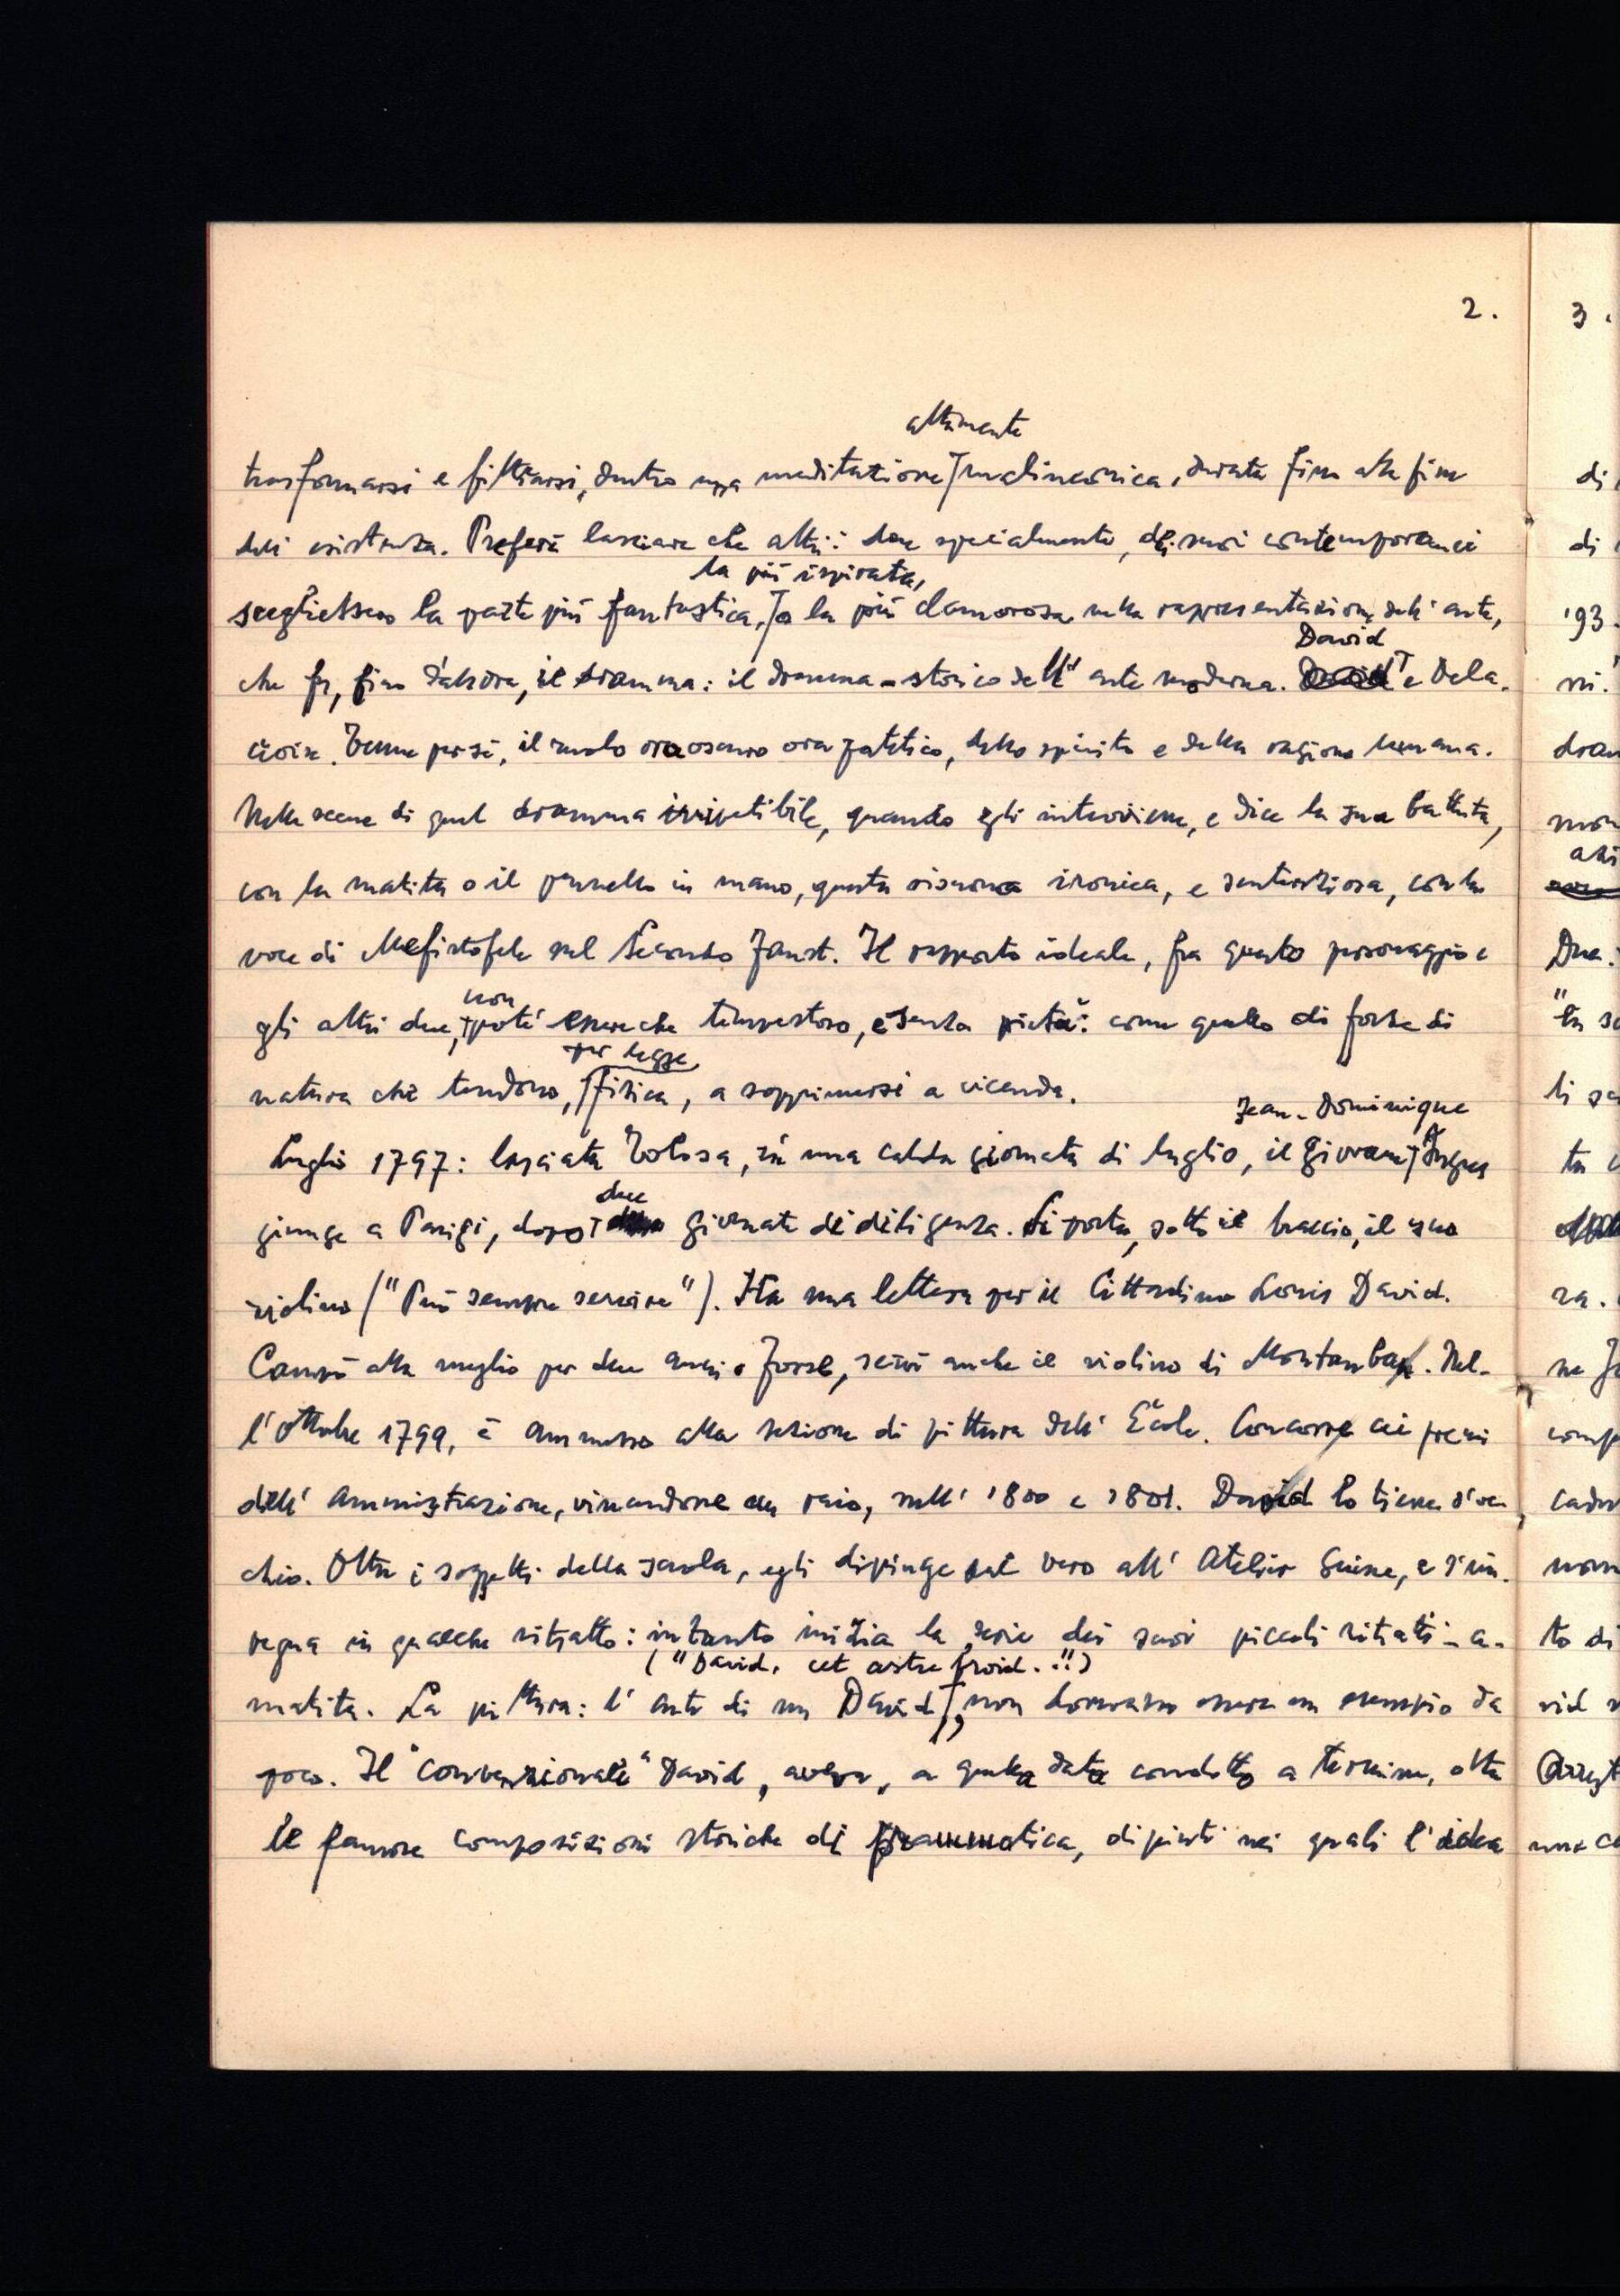 2.
altamente
trasformarsi e filtrarsi, dentro una meditazione malinconica, durata fino alla fine
dell'esistenza. Preferì lasciare che altri: due specialmente, dei suoi contemporanei
la più ispirata,
scegliessero la parte più fantastica, o la più clamorosa nella rappresentazione dell'arte,
David
che fu, fino d'allora, il dramma: il dramma-storico dell'arte moderna. e Dela-
croix. Tenne per sé, il ruolo ora oscuro ora patetico, dello spirito e della ragione umana.
Nelle scene di quel dramma irripetibile, quando egli interviene, e dice la sua battuta,
con la matita o il pennello in mano, questa risuona ironica, e sentenziosa, con la
voce di Mefistofele nel Secondo Faust. Il rapporto ideale, fra questo personaggio e
non
gli altri due, poté essere che tempestoso, e senza pietà: come quello di forze di
per legge
natura che tendono, fisica, a sopprimersi a vicenda.
Jean-Dominique
Luglio 1797: lasciata Tolosa, in una calda giornata di luglio, il giovane Ingres
due
giunge a Parigi, dopo giornate di diligenza. Si porta, sotto il braccio, il suo
violino ("Può sempre servire"). Ha una lettera per il Cittadino Louis David.
Campò alla meglio per due anni e forse, servì anche il violino di Montauban. Nel-
l'ottobre 1799, è ammesso alla sezione di pittura dell'École. Concorre ai premi
dell'Amministrazione, vincendone un paio, nell'1800 e 1801. David lo tiene d'oc-
chio. Oltre i soggetti della scuola, egli dipinge dal vero all'Atelier Suisse, e s'im-
pegna in qualche ritratto: intanto inizia la serie dei suoi piccoli ritratti-a-
("David, cet astre froid..!!)
matita. La pittura: l'arte di un David, non dovevano essere un esempio da
poco. Il "convenzionale" David, aveva, a quella data condotto a termine, oltre
le famose composizioni storiche di prammatica, dipinti nei quali l'idea
3.
di
di
'93.